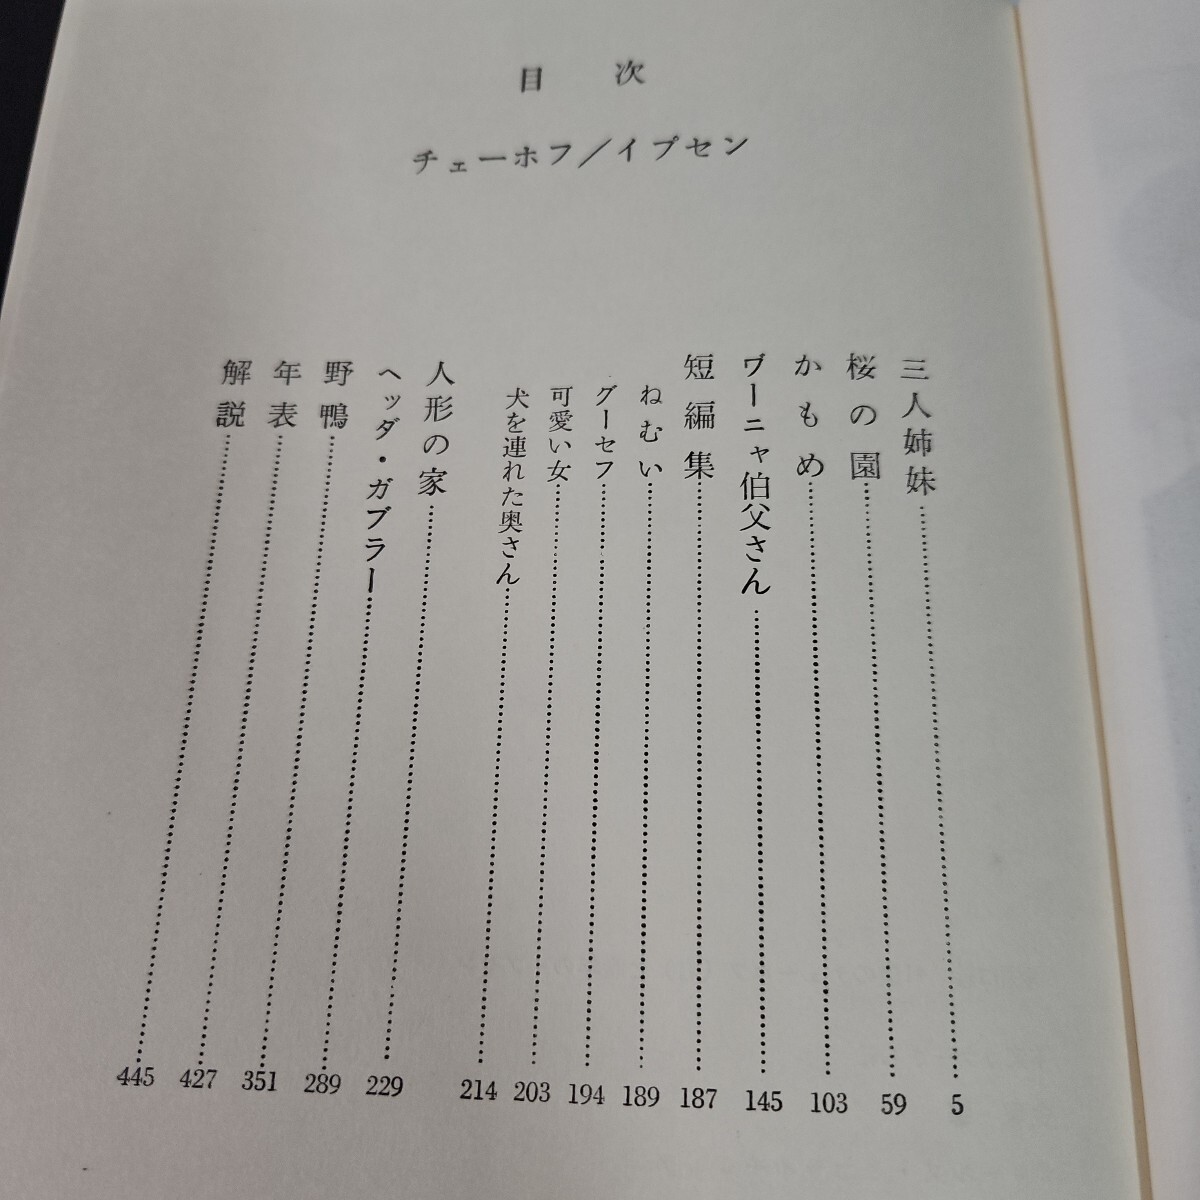 目次
チェーホフ／イプセン
三人姉妹……5
桜の園……59
かもめ……103
ワーニャ伯父さん……145
短編集……187
ねむい……189
グーセフ……194
可愛い女……203
犬を連れた奥さん……214
人形の家……229
ヘッダ・ガブラー……289
野鴨……351
年表……427
解説……445